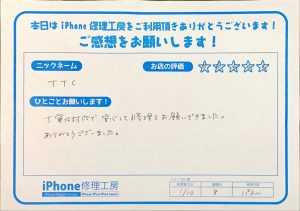 本日はiPhone修理工房をご利用頂きありがとうございます！
ご感想をお願いします！
ニックネーム
お店の評価
TTC
ひとことお願いします！
丁寧な対応で、安心して修理をお願いできました。
ありがとうございました。
iPhone修理工房
1/10
8